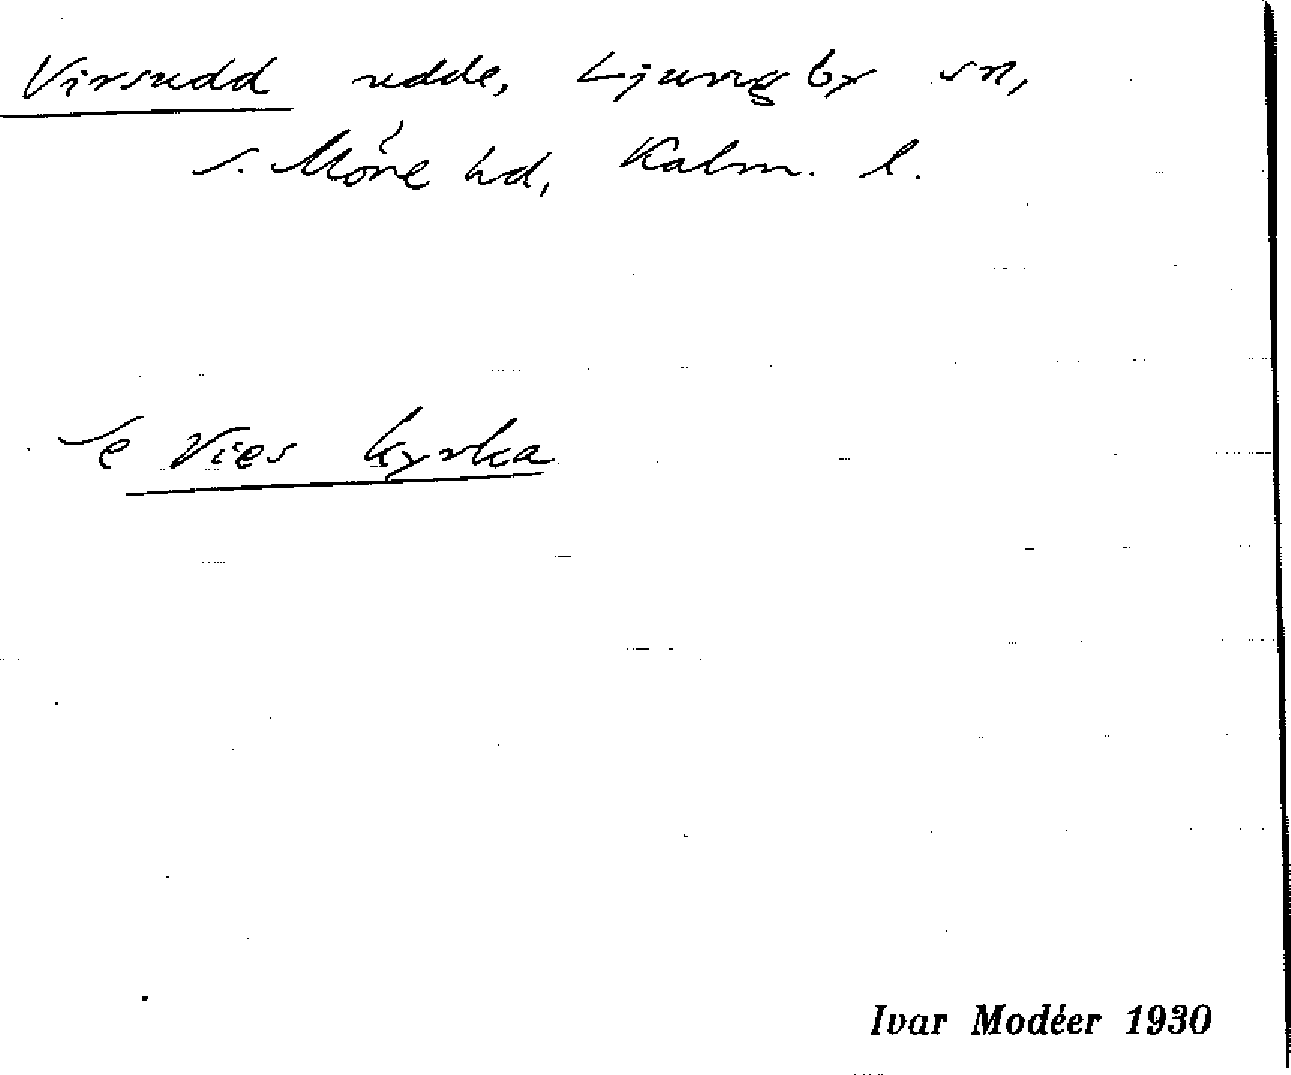 Virsudd udde, Ljungby sn,
S. Möre hd, Kalm. l.
Se Vies kyrka
Ivar Modéer 1930